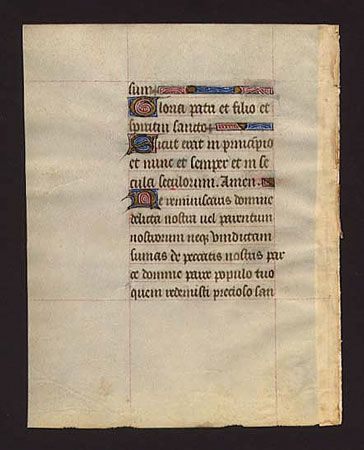 sum
Gloria patri et filio et
spiritui sancto
Sicut erat in principio
et nunc et semper et in se
cula seculorum. Amen.
Ne reminiscaris domine
delicta nostra uel parentum
nostrorum neqꝫ vindictam
sumas de peccatis nostris par
ce domine parce populo tuo
quem redemisti precioso san